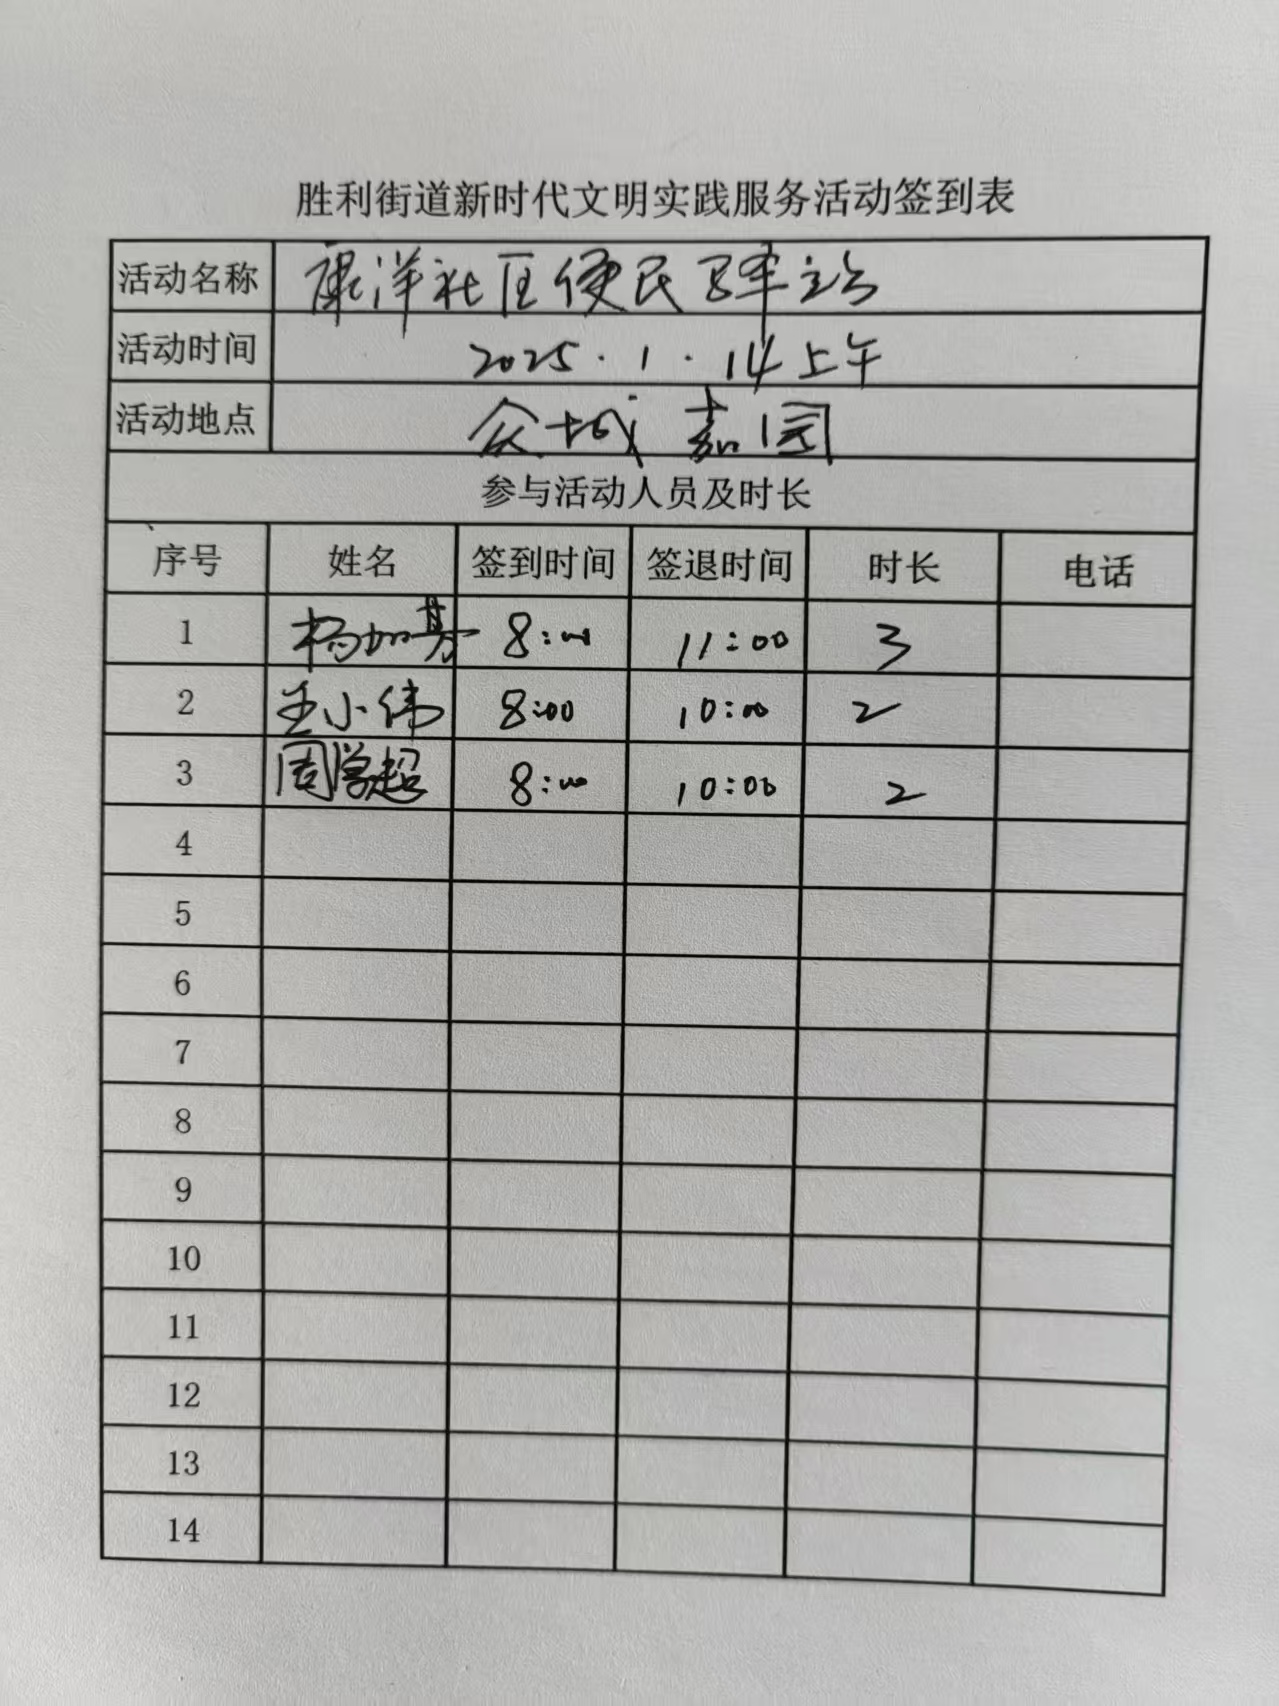 胜利街道新时代文明实践服务活动签到表
活动名称 康洋社区便民驿站
活动时间 2025.1.14上午
活动地点 众城嘉园
参与活动人员及时长
序号 姓名 签到时间 签退时间 时长 电话
1 杨加芬 8:00 11:00 3
2 王小伟 8:00 10:00 2
3 周学超 8:00 10:00 2
4
5
6
7
8
9
10
11
12
13
14